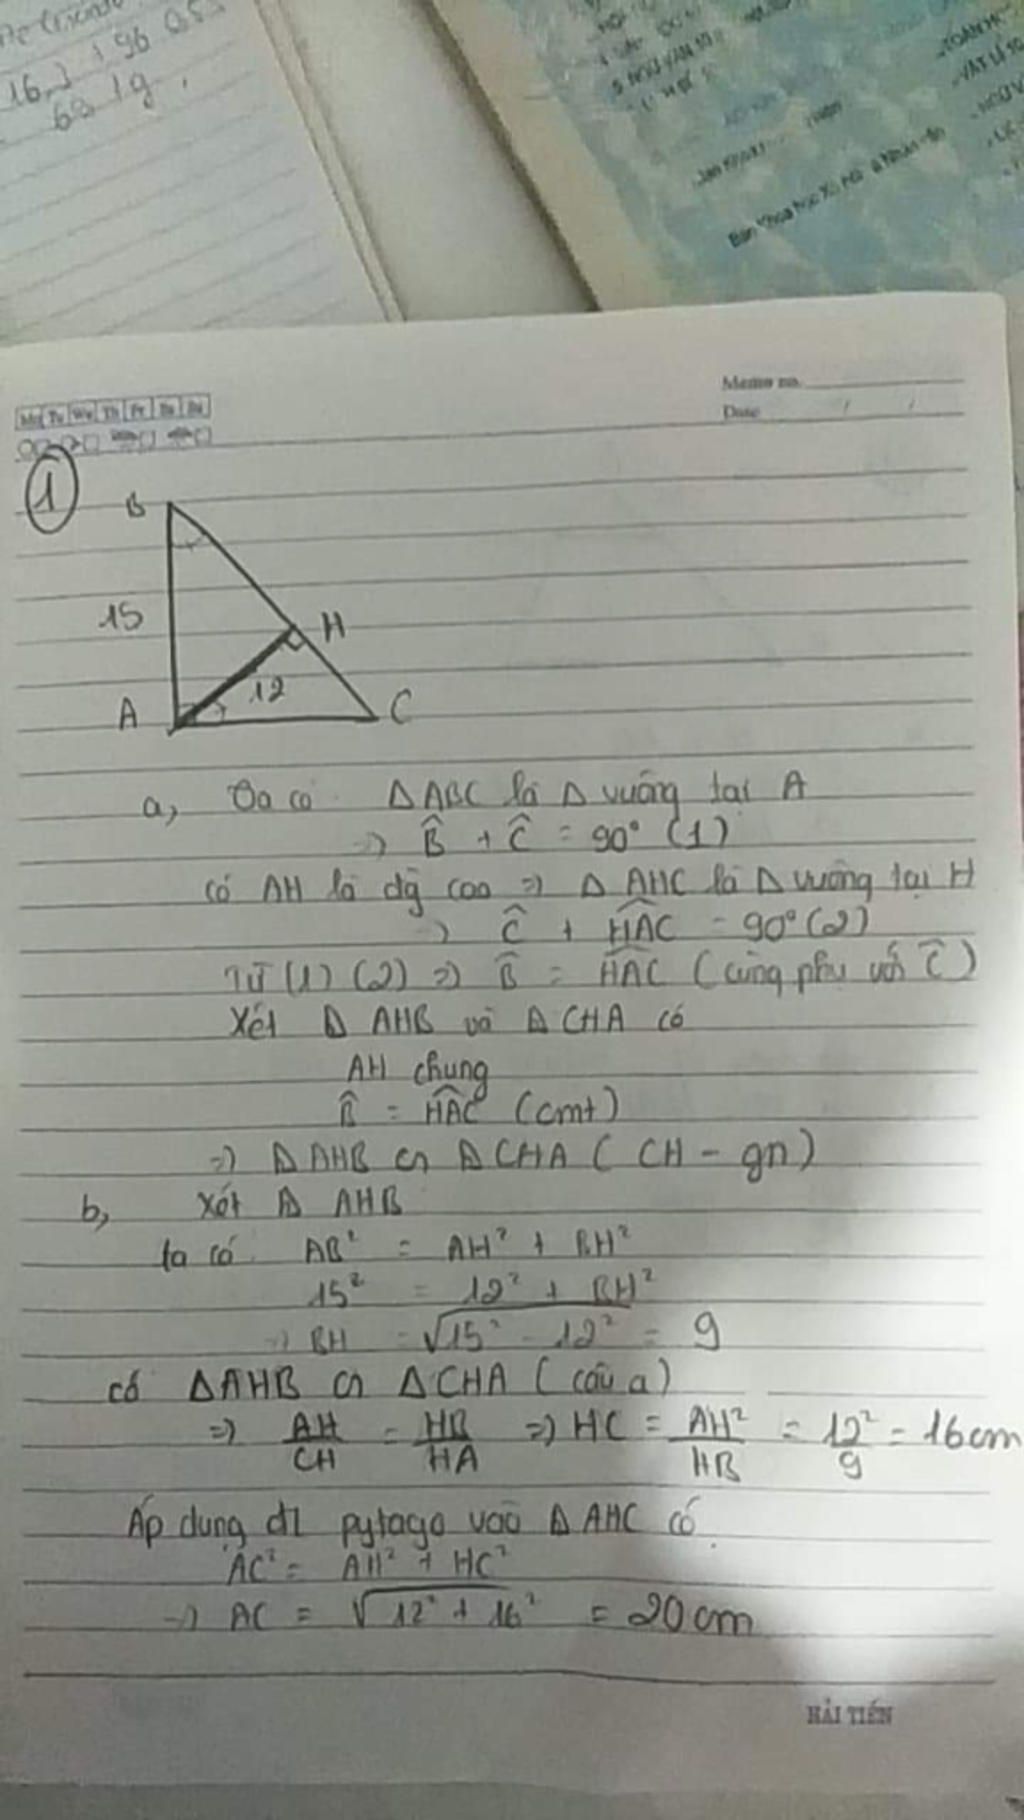 16,3 + 96
Memo no.
Date / /
Mo Tu We Th Fr Sa Su
①
B
15
H
12
A
C
a, Ta có ΔABC là Δ vuông tại A
=> B̂ + Ĉ = 90° (1)
có AH là đg cao => Δ AHC là Δ vuông tại H
=> Ĉ + HAC = 90° (2)
Từ (1) (2) => B̂ = HAC (cùng phụ với Ĉ)
Xét Δ AHB và Δ CHA có
AH chung
B̂ = HAC (cmt)
=> Δ AHB ᔕ Δ CHA (CH - gn)
b, Xét Δ AHB
ta có AB² = AH² + BH²
15² = 12² + BH²
=> BH = √15² - 12² = 9
có ΔAHB ᔕ ΔCHA (câu a)
=> AH/CH = HB/HA => HC = AH²/HB = 12²/9 = 16cm
Áp dụng đl pytago vào Δ AHC có
AC² = AH² + HC²
=> AC = √12² + 16² = 20cm
HẢI TIẾN